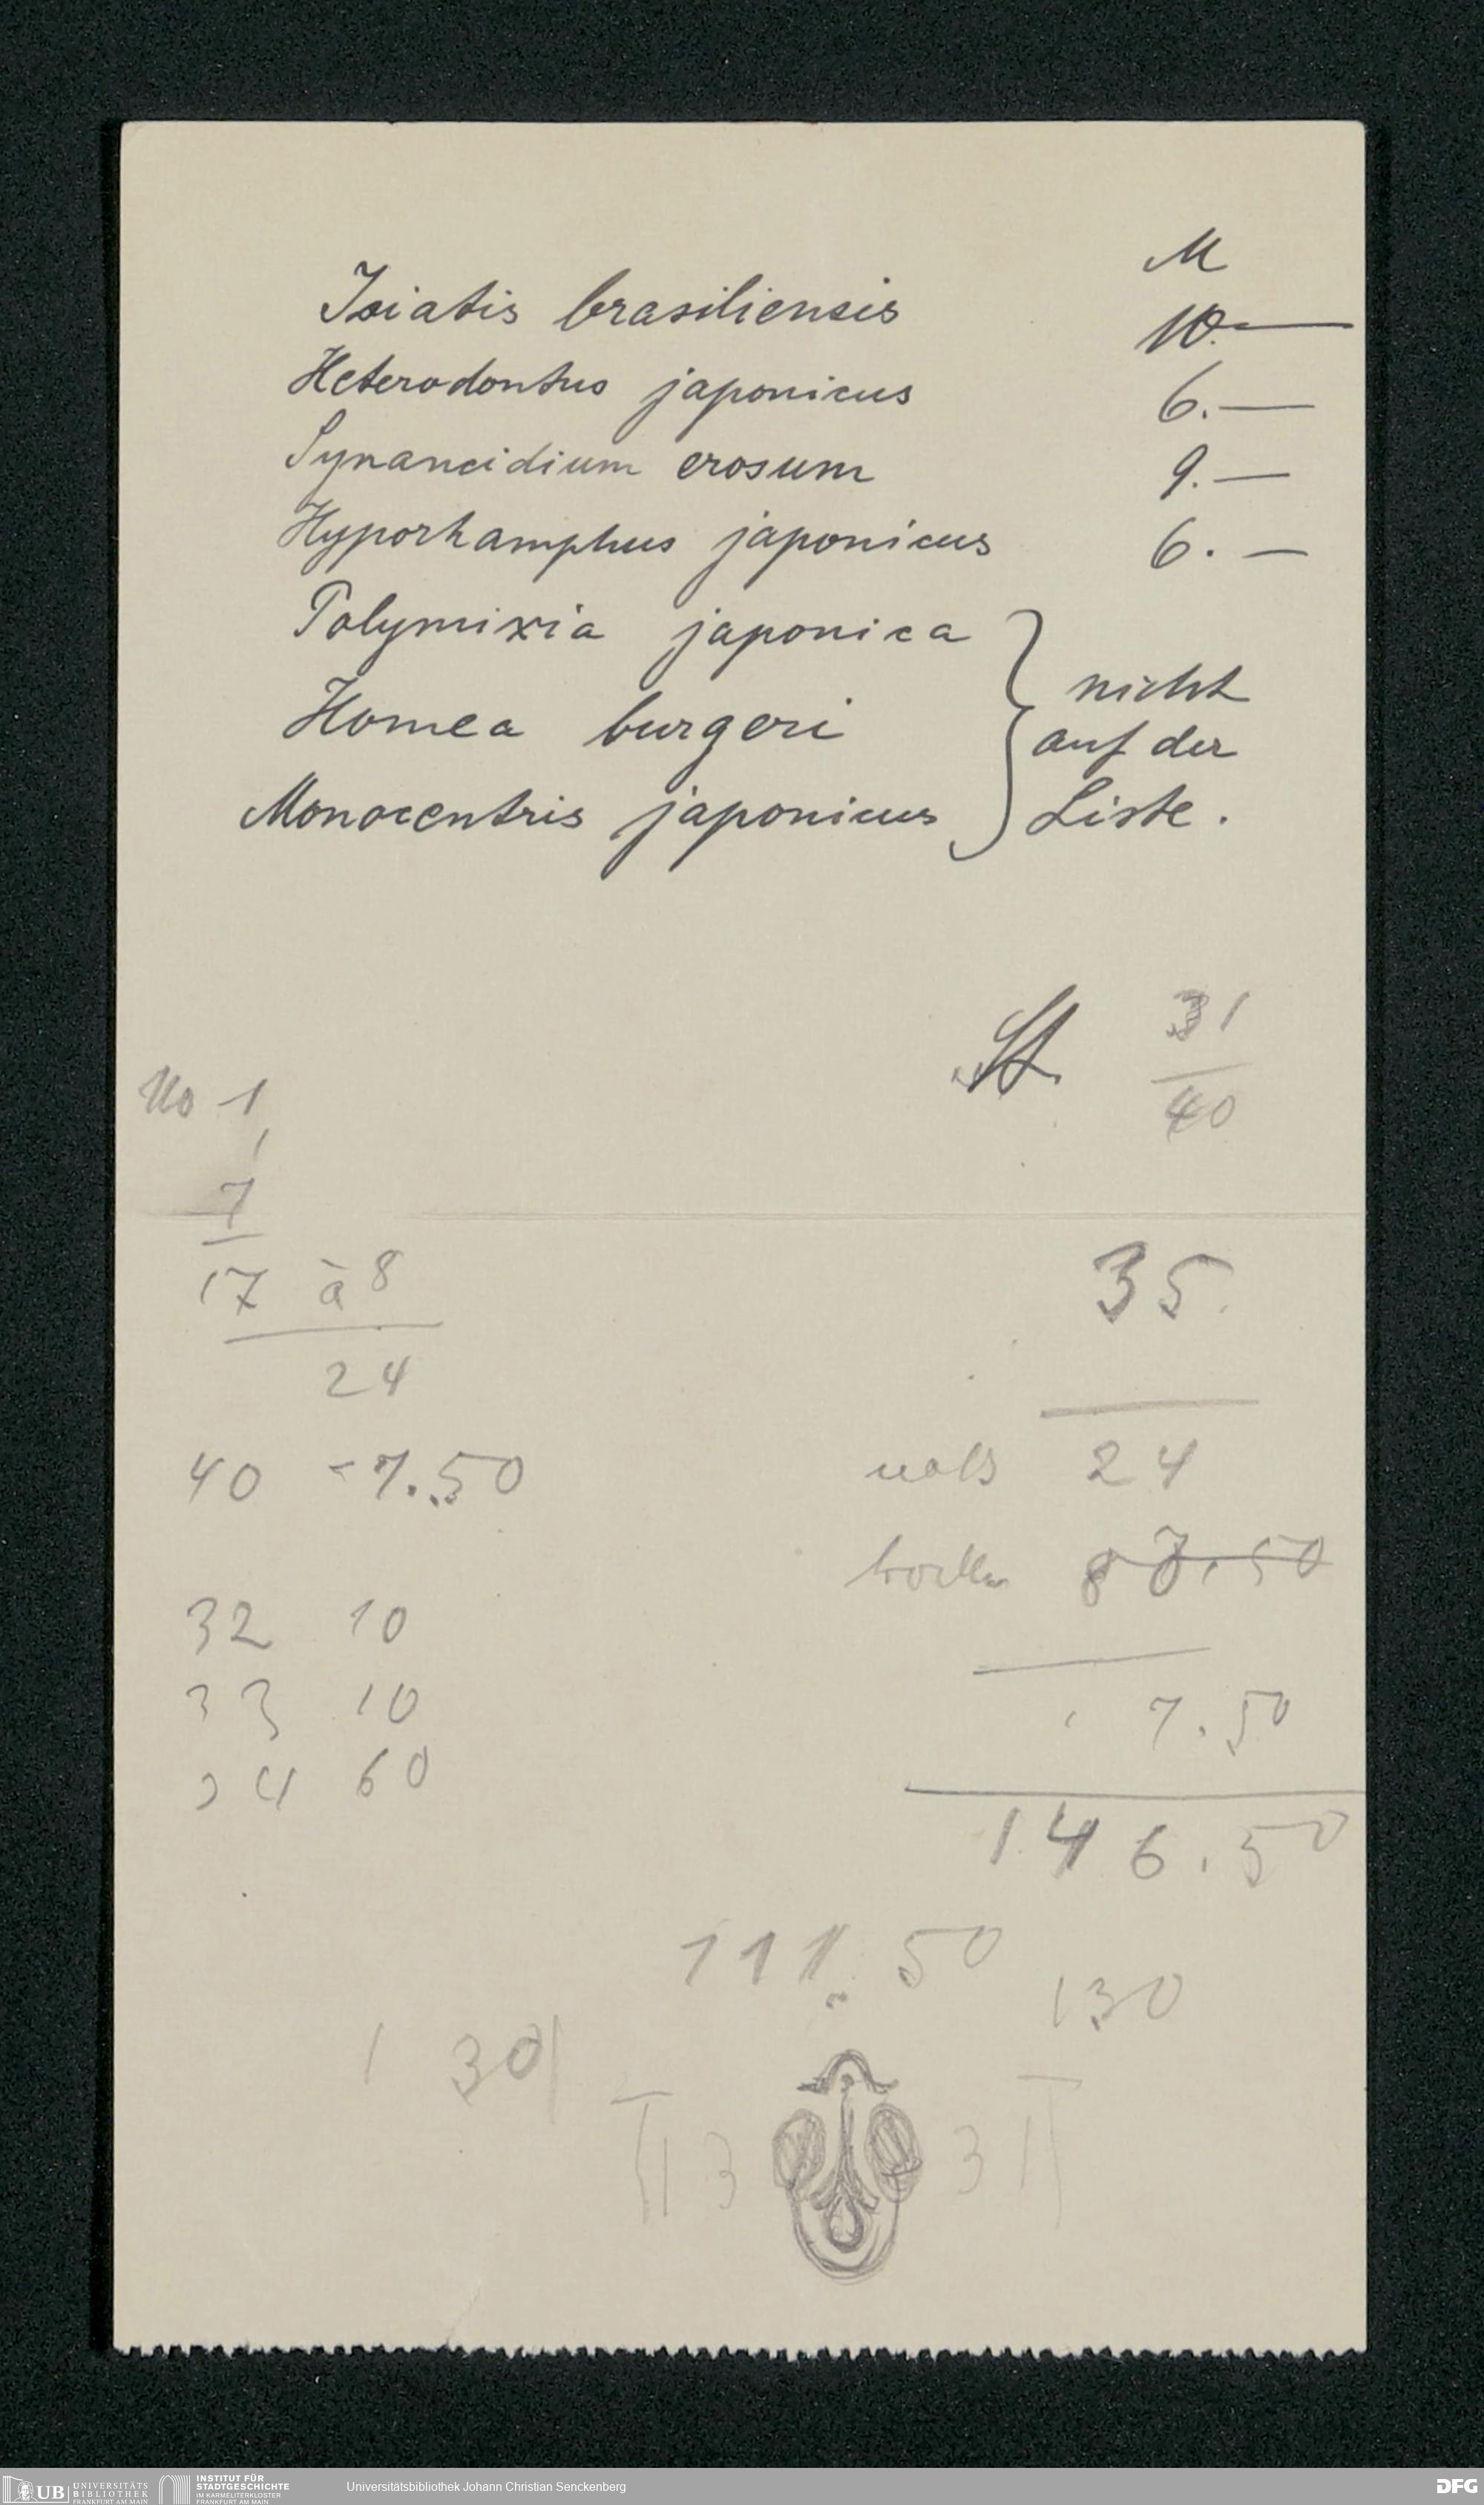 M
Isiatis brasiliensis 10.—
Heterodontus japonicus 6.—
Synancidium erosum 9.—
Hyporhamphus japonicus 6.—
Polymixia japonica
Homea burgeri
Monocentris japonicus
nicht
auf der
Liste.
St. 31
40
No 1
1
7
17 à 8
24
40 - 7.50
32 10
33 10
34 60
35.
24
87.50
7.50
146.50
111.50
130
1 30
3 3
UB UNIVERSITÄTS
BIBLIOTHEK
FRANKFURT AM MAIN
INSTITUT FÜR
STADTGESCHICHTE
IM KARMELITERKLOSTER
FRANKFURT AM MAIN
Universitätsbibliothek Johann Christian Senckenberg
DFG